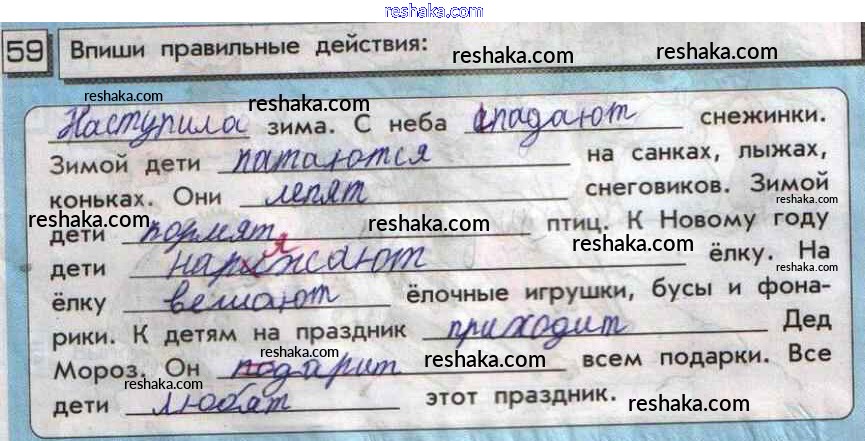 reshaka.com
59 Впиши правильные действия: reshaka.com
reshaka.com reshaka.com reshaka.com
Наступила зима. С неба спадают снежинки.
Зимой дети катаются на санках, лыжах,
коньках. Они лепят снеговиков. Зимой
reshaka.com reshaka.com reshaka.com
дети кормят птиц. К Новому году
дети наряжают ёлку. На
reshaka.com reshaka.com
ёлку вешают ёлочные игрушки, бусы и фона-
рики. К детям на праздник приходит Дед
reshaka.com reshaka.com
Мороз. Он подарит всем подарки. Все
reshaka.com reshaka.com
дети любят этот праздник. reshaka.com
reshaka.com